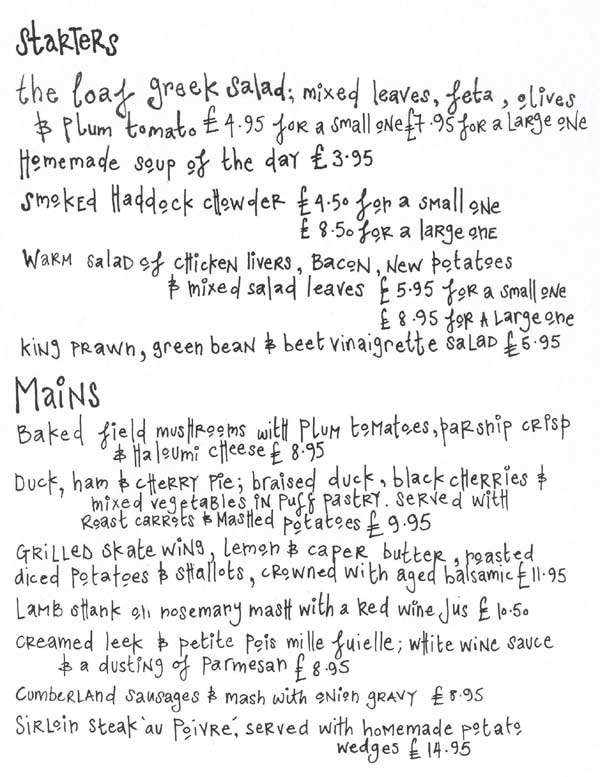 Starters
the loaf greek salad; mixed leaves, feta, olives
& plum tomato £4.95 for a small one £7.95 for a large one
Homemade soup of the day £3.95
Smoked Haddock chowder £4.50 for a small one
£8.50 for a large one
Warm salad of chicken livers, Bacon, New potatoes
& mixed salad leaves £5.95 for a small one
£8.95 for a large one
King prawn, green bean & beet vinaigrette salad £5.95
Mains
Baked field mushrooms with plum tomatoes, parsnip crisp
& Haloumi cheese £8.95
Duck, ham & cherry pie; braised duck, black cherries &
mixed vegetables in puff pastry. served with
Roast carrots & Mashed potatoes £9.95
Grilled skate wing, lemon & caper butter, roasted
diced potatoes & shallots, crowned with aged balsamic £11.95
Lamb shank on rosemary mash with a red wine jus £10.50
creamed leek & petite pois mille fuielle; white wine sauce
& a dusting of parmesan £8.95
Cumberland sausages & mash with onion gravy £8.95
Sirloin steak 'au poivre', served with homemade potato
wedges £14.95